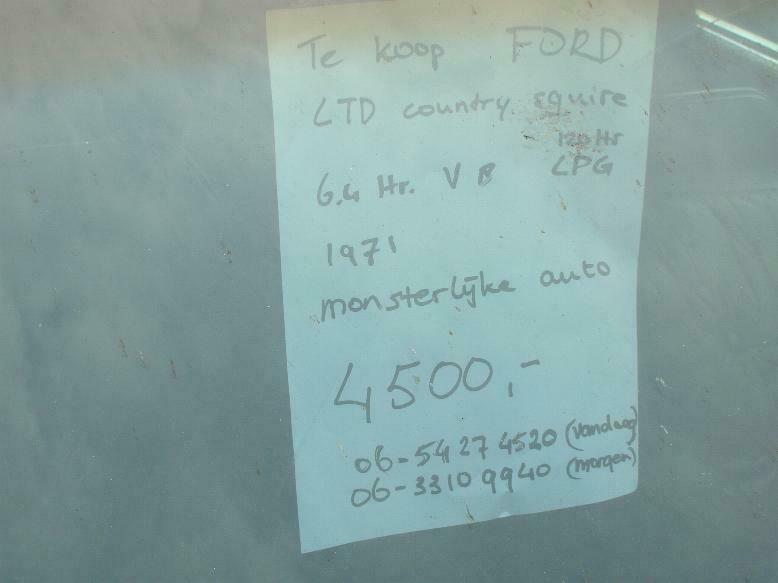 Te koop FORD
LTD country squire
120 ltr
6.4 ltr. V 8 LPG
1971
monsterlijke auto
4500,-
06-54274520 (vandaag)
06-33109940 (morgen)